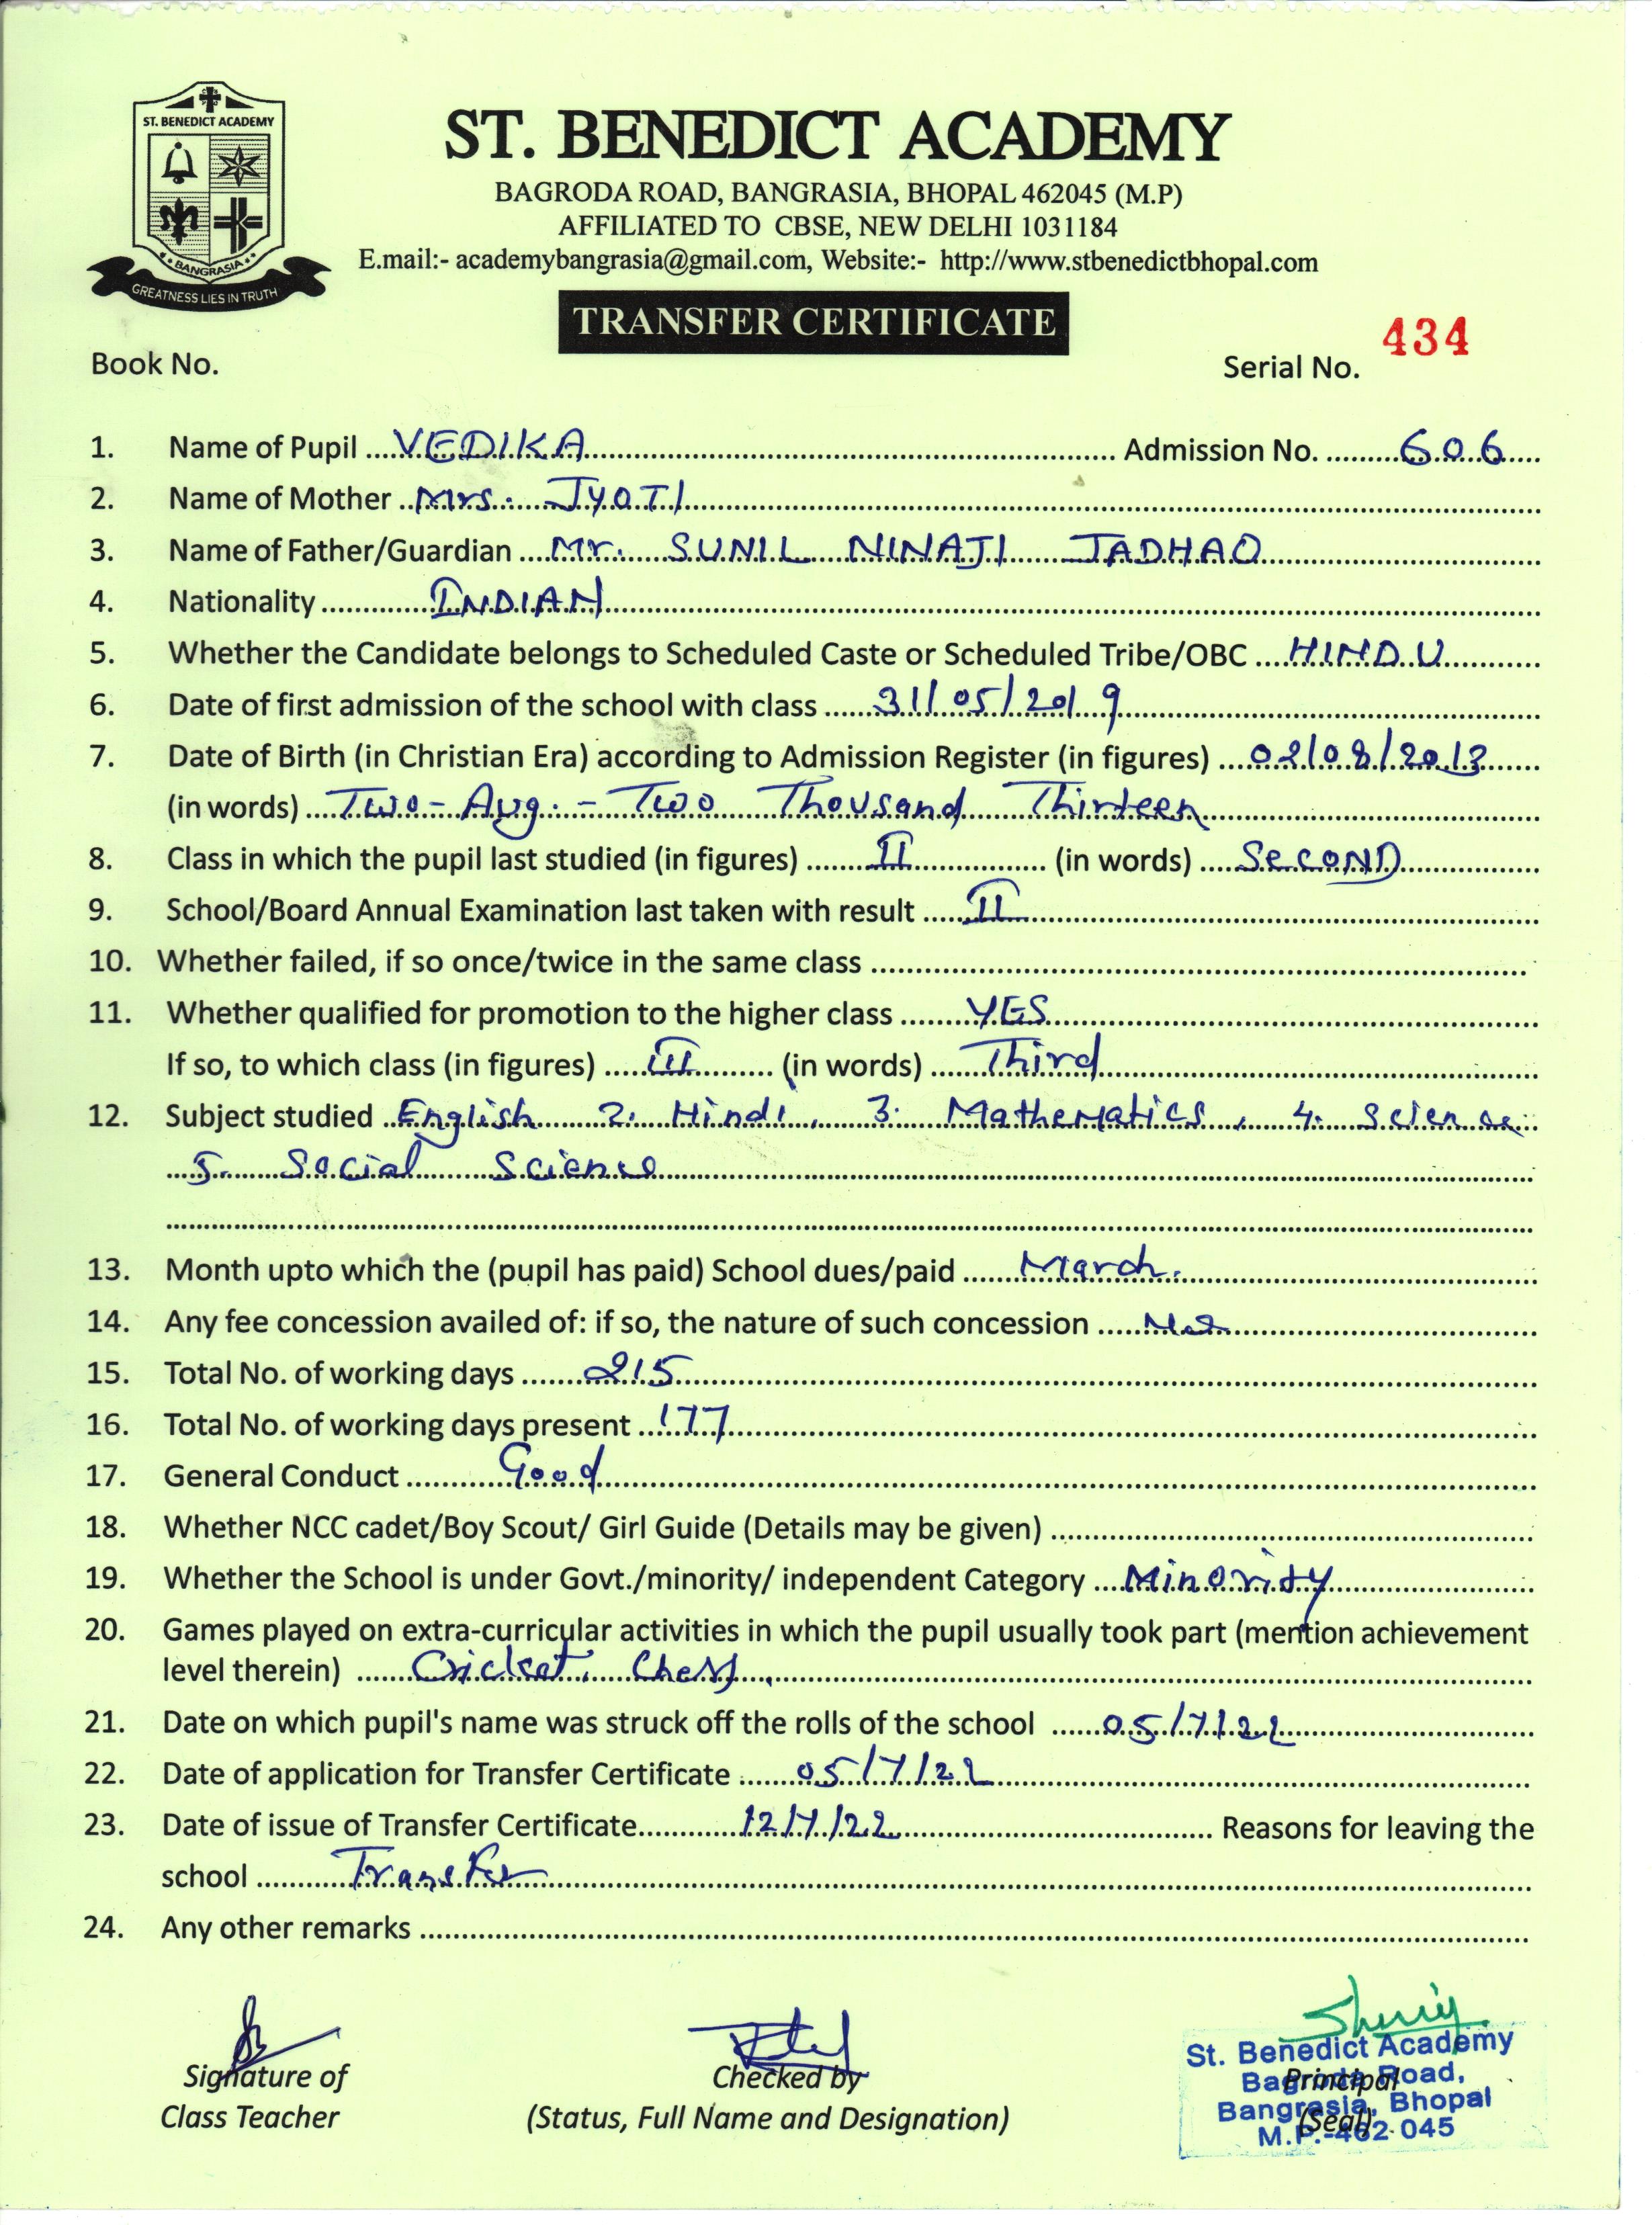 ST. BENEDICT ACADEMY
BANGRASIA
GREATNESS LIES IN TRUTH
ST. BENEDICT ACADEMY
BAGRODA ROAD, BANGRASIA, BHOPAL 462045 (M.P)
AFFILIATED TO CBSE, NEW DELHI 1031184
E.mail:- academybangrasia@gmail.com, Website:- http://www.stbenedictbhopal.com
TRANSFER CERTIFICATE
Book No. Serial No. 434
1. Name of Pupil VEDIKA Admission No. 606
2. Name of Mother Mrs. JYOTI
3. Name of Father/Guardian Mr. SUNIL NINAJI JADHAO
4. Nationality INDIAN
5. Whether the Candidate belongs to Scheduled Caste or Scheduled Tribe/OBC HINDU
6. Date of first admission of the school with class 31/05/2019
7. Date of Birth (in Christian Era) according to Admission Register (in figures) 02/08/2013
(in words) Two - Aug. - Two Thousand Thirteen
8. Class in which the pupil last studied (in figures) II (in words) SECOND
9. School/Board Annual Examination last taken with result II
10. Whether failed, if so once/twice in the same class
11. Whether qualified for promotion to the higher class YES
If so, to which class (in figures) III (in words) Third
12. Subject studied English 2. Hindi, 3. Mathematics, 4. Science
5. Social Science
13. Month upto which the (pupil has paid) School dues/paid March.
14. Any fee concession availed of: if so, the nature of such concession No
15. Total No. of working days 215
16. Total No. of working days present 177
17. General Conduct Good
18. Whether NCC cadet/Boy Scout/ Girl Guide (Details may be given)
19. Whether the School is under Govt./minority/ independent Category Minority
20. Games played on extra-curricular activities in which the pupil usually took part (mention achievement
level therein) Cricket, Chess,
21. Date on which pupil's name was struck off the rolls of the school 05/7/22
22. Date of application for Transfer Certificate 05/7/22
23. Date of issue of Transfer Certificate 12/7/22 Reasons for leaving the
school Transfer
24. Any other remarks
Signature of
Class Teacher
Checked by
(Status, Full Name and Designation)
St. Benedict Academy
Bagroda Road,
Bangrasia, Bhopal
M.P.-462 045
Principal
(Seal)